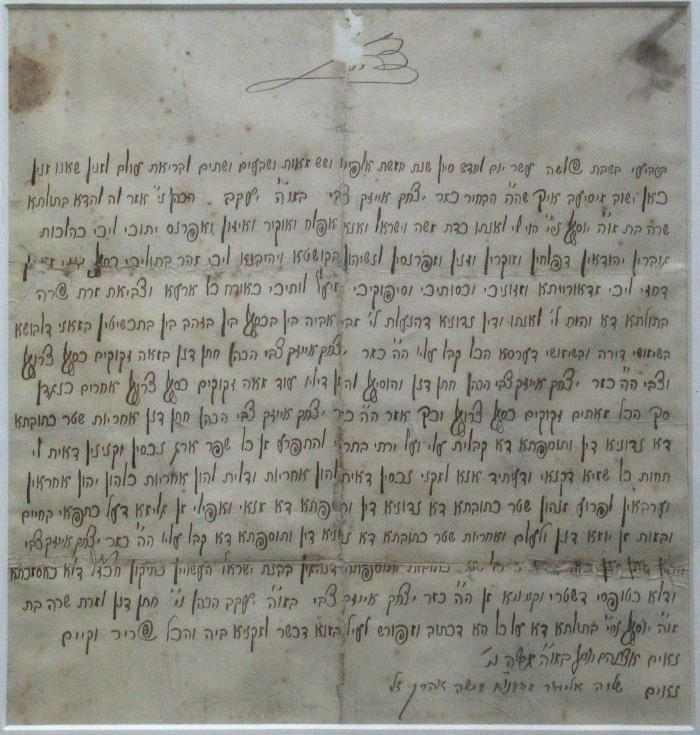 בשביעי בשבת שלשה עשר יום לחדש סיון שנת חמשת אלפים ושש מאות ושבעים ושתים לבריאת עולם למנין שאנו מנין
כאן ישוב איך שה״ה הבחיר כמר יצחק אייזק צבי באו״ה יעקב הכהן ני׳ אמר לה להדא בתולתא
שרה בת או״ה יוסף ני״ הוי לי לאנתו כדת משה וישראל ואנא אפלח ואוקיר ואיזון ואפרנס יתיכי ליכי כהלכות
גוברין יהודאין דפלחין ומוקרין וזנין ומפרנסין לנשיהון בקושטא ויהיבנא ליכי מהר בתוליכי כסף זוזי
דחזי ליכי מדאורייתא ומזוניכי וכסותיכי וסיפוקיכי ומיעל לותיכי כאורח כל ארעא וצביאת מרת שרה
בתולתא דא והות לי׳ לאנתו ודין נדוניא דהנעלת לי׳ מבי אביה בין בכסף בין בזהב בין בתכשיטין במאני דלבושא
בשימושי דירה ובשימושי דערסא הכל קבל עליו ה״ה כמר יצחק אייזק צבי הכהן חתן דנן במאה זקוקים כסף צרוף
וצבי ה״ה כמר יצחק אייזק צבי הכהן חתן דנן והוסיף לה מן דיליה עוד מאה זקוקים כסף צרוף אחרים כנגדן
סך הכל מאתים זקוקים כסף צרוף וכך אמר ה״ה כמר יצחק אייזק צבי הכהן חתן דנן אחריות שטר כתובתא
דא נדוניא דין ותוספתא דא קבלית עלי ועל ירתי בתראי להתפרע מן כל שפר ארג נכסין וקנינין דאית לי
תחות כל שמיא דקנאי ודעתיד אנא למקני נכסין דאית להון אחריות ודלית להון אחריות כלהון יהון אחראין
וערבאין לפרוע מנהון שטר כתובתא דא נדוניא דין ותוספתא דא מנאי ואפילו מן גלימא דעל כתפאי בחיים
ובמות מן יומא דנן ולעלם ואחריות שטר כתובתא דא נדוניא דין ותוספתא דא קבל עליו ה״ה כמר יצחק אייזק צבי
הכהן חתן דנן ותוספתא דנהגין בבנת ישראל העשויין כתיקון חכז״ל דלא כאסמכתא
ודלא כטופסי דשטרי וקנינא מן ה״ה כמר יצחק אייזק צבי באו״ה יעקב הכהן ני׳ חתן דנן למרת שרה בת
או״ה יוסף ני״ בתולתא דא על כל הא דכתוב ומפורש לעיל במנא דכשר למקניא ביה והכל שריר וקיים
נאום באו״ה משה ני׳
נאום שלמה אליעזר משה אהרן ז״ל